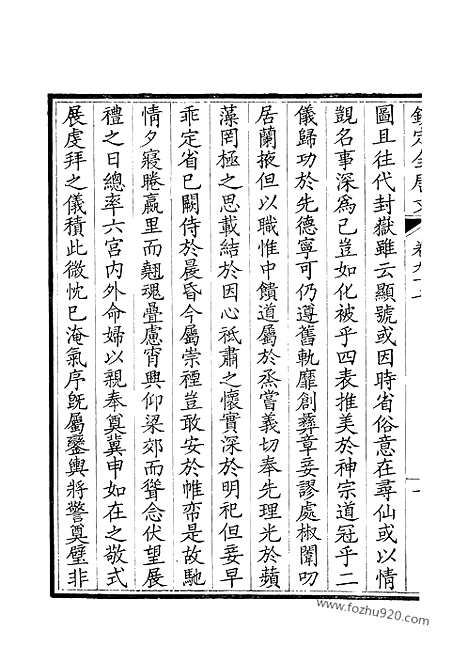 欽定全唐文 卷九十
圖且往代封嶽雖云顯號或因時省俗意在尋仙或以情
覬名事深為己豈如化被乎四表推美於神宗道冠乎二
儀歸功於先德寧可仍遵舊軌靡創彝章妾謬處椒闈叨
居蘭掖但以職惟中饋道屬於烝嘗義切奉先理光於蘋
藻罔極之思載結於因心祗肅之懷實深於明祀但妾早
乖定省已闕侍於晨昏今屬崇禋豈敢安於帷帟是故馳
情夕寢睠嬴里而翹魂疊慮宵興仰梁郊而聳念伏望展
禮之日總率六宮內外命婦以親奉奠冀申如在之敬式
展虔拜之儀積此微忱已淹氣序旣屬鑾輿將警奠璧非
www.fozhu920.com